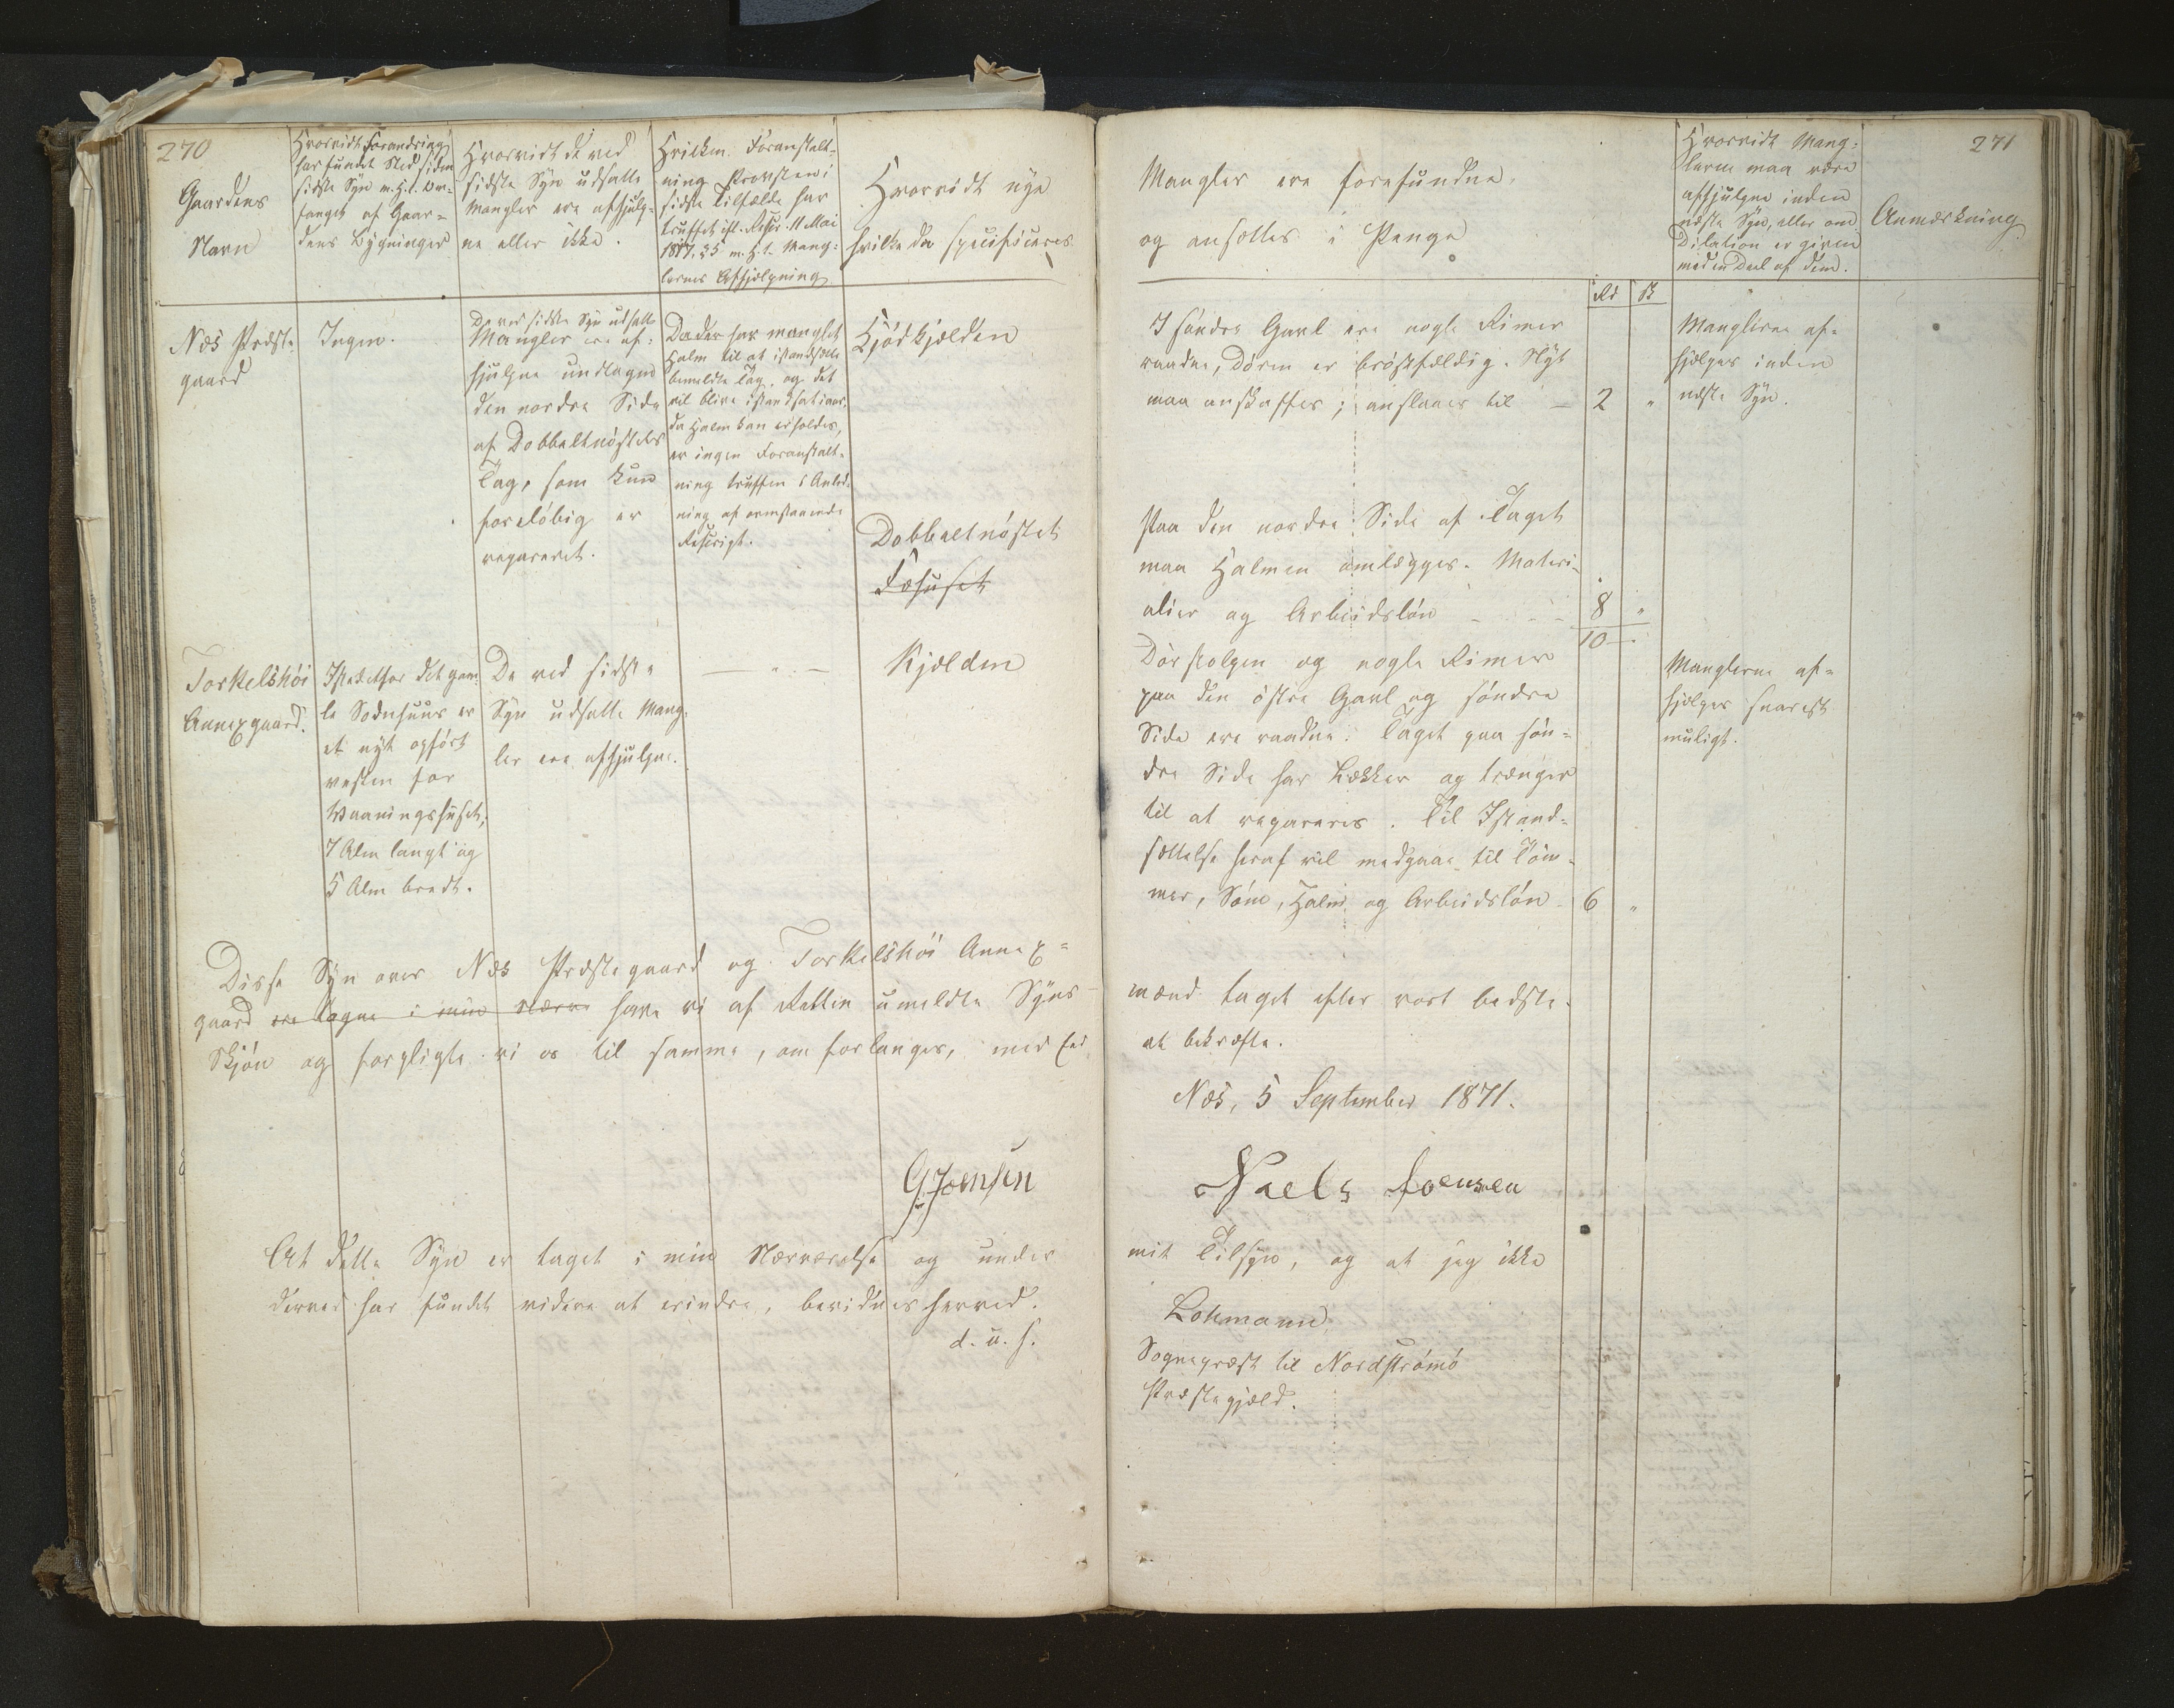 270
Gaardens
Navn
Hvorvidt Forandring
har fundet Sted siden
sidste Syn m. H. t. Om-
fanget af Gaar-
dens Bygninger
Hvorvidt de ved
sidste Syn udsatte
Mangler ere afhjulp-
ne eller ikke.
Hvilken Foranstalt-
ning Provsten i
sidste Tilfælde har
truffet ifl. Rescr. 11 Mai
m. H. t. Mang-
lernes Afhjælpning
Hvorvidt nye
hvilke da specificeres
Næs Præste-
gaard
Ingen.
De ved sidste Syn udsatte
Mangler ere af-
hjulpne undtagen
den nordre Side
af Dobbeltnøstets
Tag, som kun
foreløbig er
repareret.
Da der har manglet
Halm til at istandsætte
bemeldte Tag, og det
vil blive istandsat
da Halm kan erholdes,
er ingen Foranstalt-
ning truffen i Anled-
ning af ovenstaaende
Rescript.
Kjødkjælden
Dobbeltnøstet
Fæhuset
Torkelshøi
Annexgaard.
Istedetfor det gam-
le Sodnhuus er
et nyt opført
vesten for
Vaaningshuset,
7 Alen langt og
5 Alen bredt.
De ved sidste
Syn udsatte Mang-
ler ere afhjulpne.
— " —
Kjælden
Disse Syn over Næs Præstegaard og Torkelshøi Annex-
gaard ere tagne i min Nærv have vi af Retten umeldte Syns-
Skjøn og forpligte vi os til samme, om forlanges, med Eed
G. Joensen
At dette Syn er taget i min Nærværelse og under
derved har fundet videre at erindre, bevidnes herved.
d. u. s.
271
Mangler ere forefundne,
og ansættes i Penge
Hvorvidt Mang-
lerne maa være
afhjulpne inden
næste Syn, eller om
Dilation er given
med en Deel af dem.
Anmærkning
Rd ß
I søndre Gavl ere nogle Rimer
raadne, Døren er brøstfældig. Nyt
maa anskaffes; anslaaes til — 2 "
Manglerne af-
hjælpes inden
næste Syn.
Paa den nordre Side af Taget
maa Halmen omlægges. Materi-
alier og Arbeidsløn - - - 8 "
10 "
Dørstolpen og nogle Rimer
paa den østre Gavl og søndre
Side ere raadne. Taget paa søn-
dre Side har Lækker og trænger
til at repareres. Til Istand-
sættelse heraf vil medgaae til Tøm-
mer, Søm, Halm og Arbeidsløn - 6 "
Manglerne af-
hjælpes snarest
muligt.
mænd taget efter vort bedste
at bekræfte.
Næs, 5 September 1871.
Niels Joensen
mit Tilsyn, og at jeg ikke
Lohmann
Sognepræst til Nordstrømø
Præstegjæld.